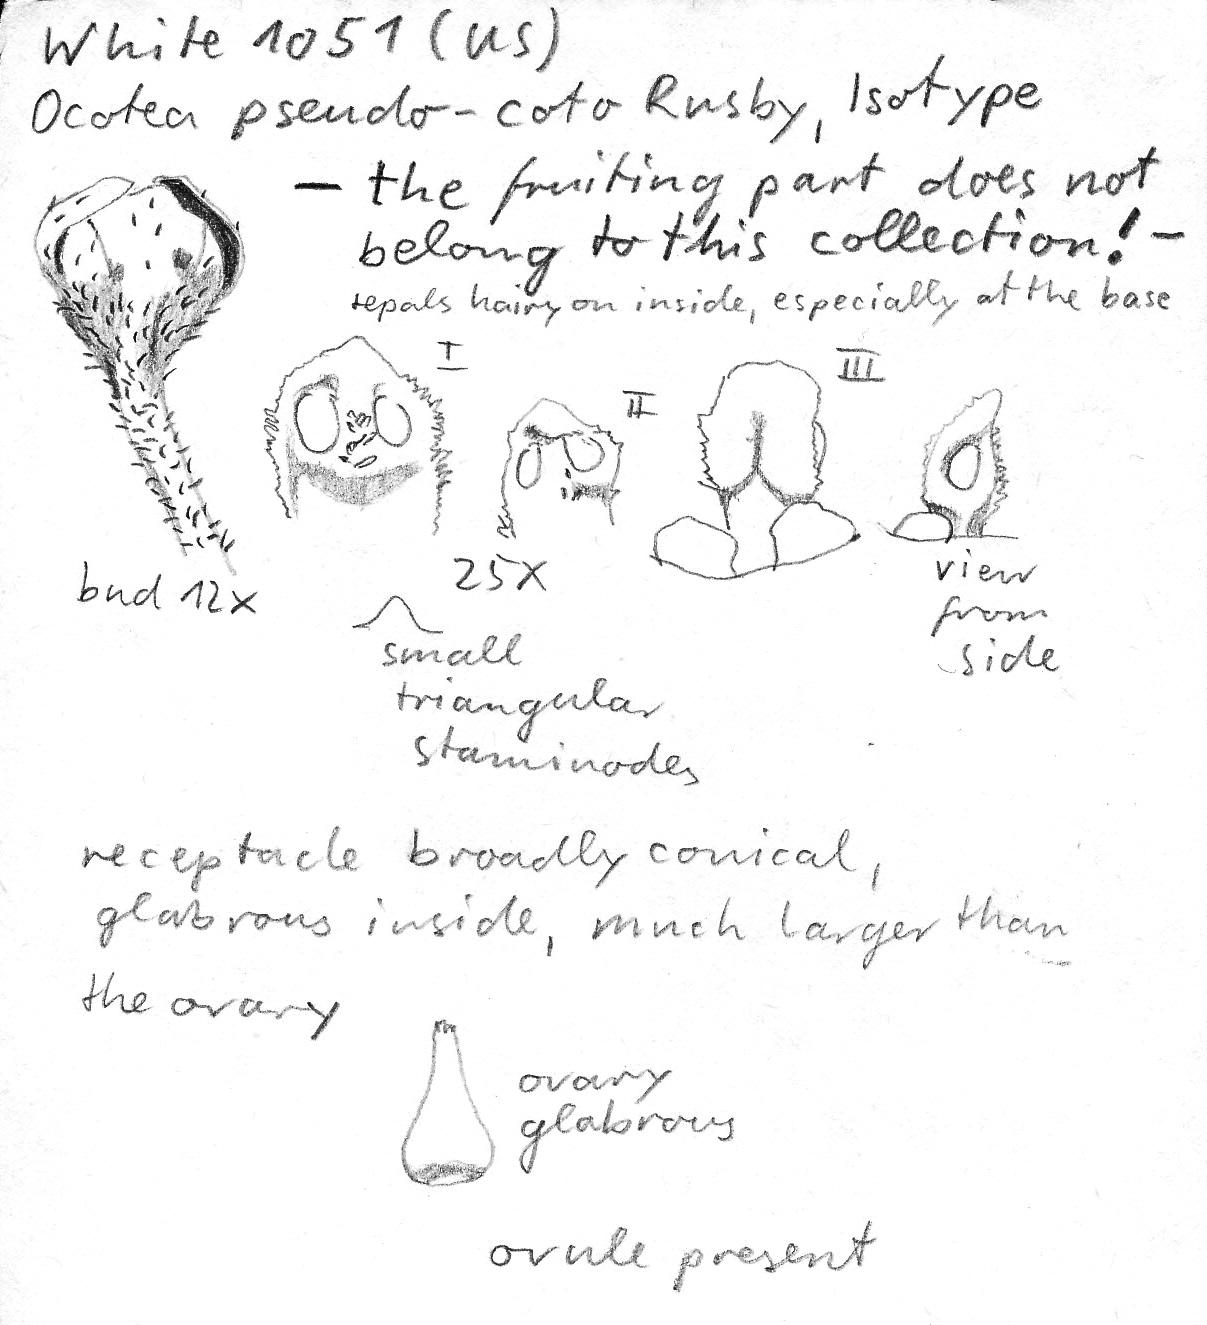 White 1051 (US)
Ocotea pseudo-coto Rusby, Isotype
— the fruiting part does not
belong to this collection! —
sepals hairy on inside, especially at the base
I
II
III
bud 12x
25x
view
from
side
small
triangular
staminodes
receptacle broadly conical,
glabrous inside, much larger than
the ovary
ovary
glabrous
ovule present